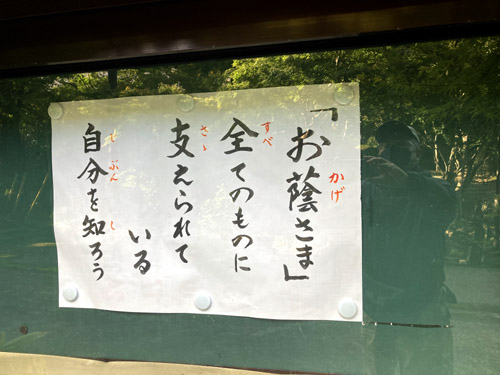 「お蔭さま」
かげ
全てのものに
すべ
支えられて
ささ
いる
自分を知ろう
じぶん
し